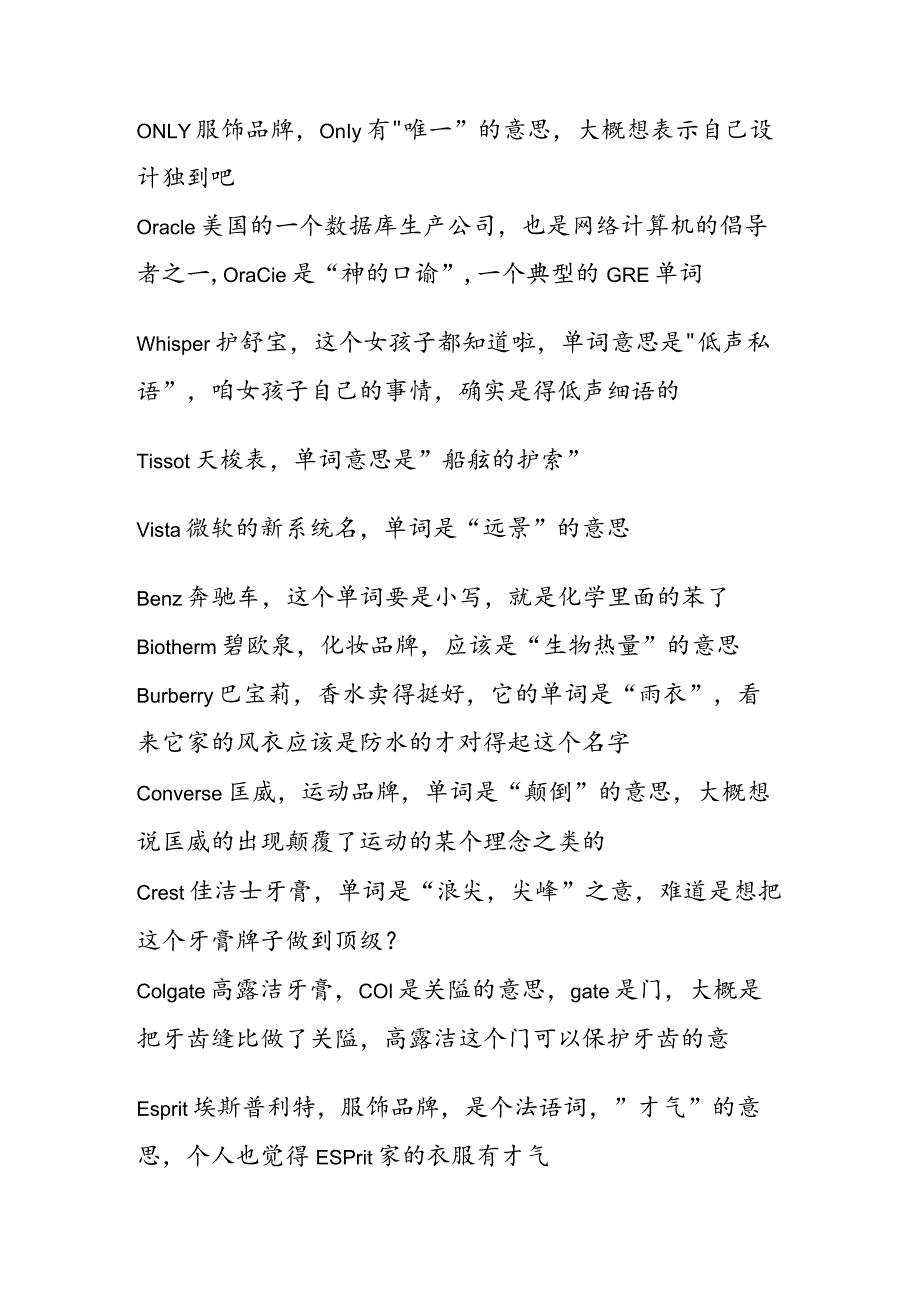 ONLY服饰品牌，Only有"唯一”的意思，大概想表示自己设
计独到吧
Oracle美国的一个数据库生产公司，也是网络计算机的倡导
者之一,OraCie是“神的口谕”,一个典型的GRE单词
Whisper护舒宝，这个女孩子都知道啦，单词意思是"低声私
语”，咱女孩子自己的事情，确实是得低声细语的
Tissot天梭表，单词意思是”船舷的护索”
Vista微软的新系统名，单词是“远景”的意思
Benz奔驰车，这个单词要是小写，就是化学里面的苯了
Biotherm碧欧泉，化妆品牌，应该是“生物热量”的意思
Burberry巴宝莉，香水卖得挺好，它的单词是“雨衣”，看
来它家的风衣应该是防水的才对得起这个名字
Converse匡威，运动品牌，单词是“颠倒”的意思，大概想
说匡威的出现颠覆了运动的某个理念之类的
Crest佳洁士牙膏，单词是“浪尖，尖峰”之意，难道是想把
这个牙膏牌子做到顶级？
Colgate高露洁牙膏，COl是关隘的意思，gate是门，大概是
把牙齿缝比做了关隘，高露洁这个门可以保护牙齿的意
Esprit埃斯普利特，服饰品牌，是个法语词，”才气”的意
思，个人也觉得ESPrit家的衣服有才气